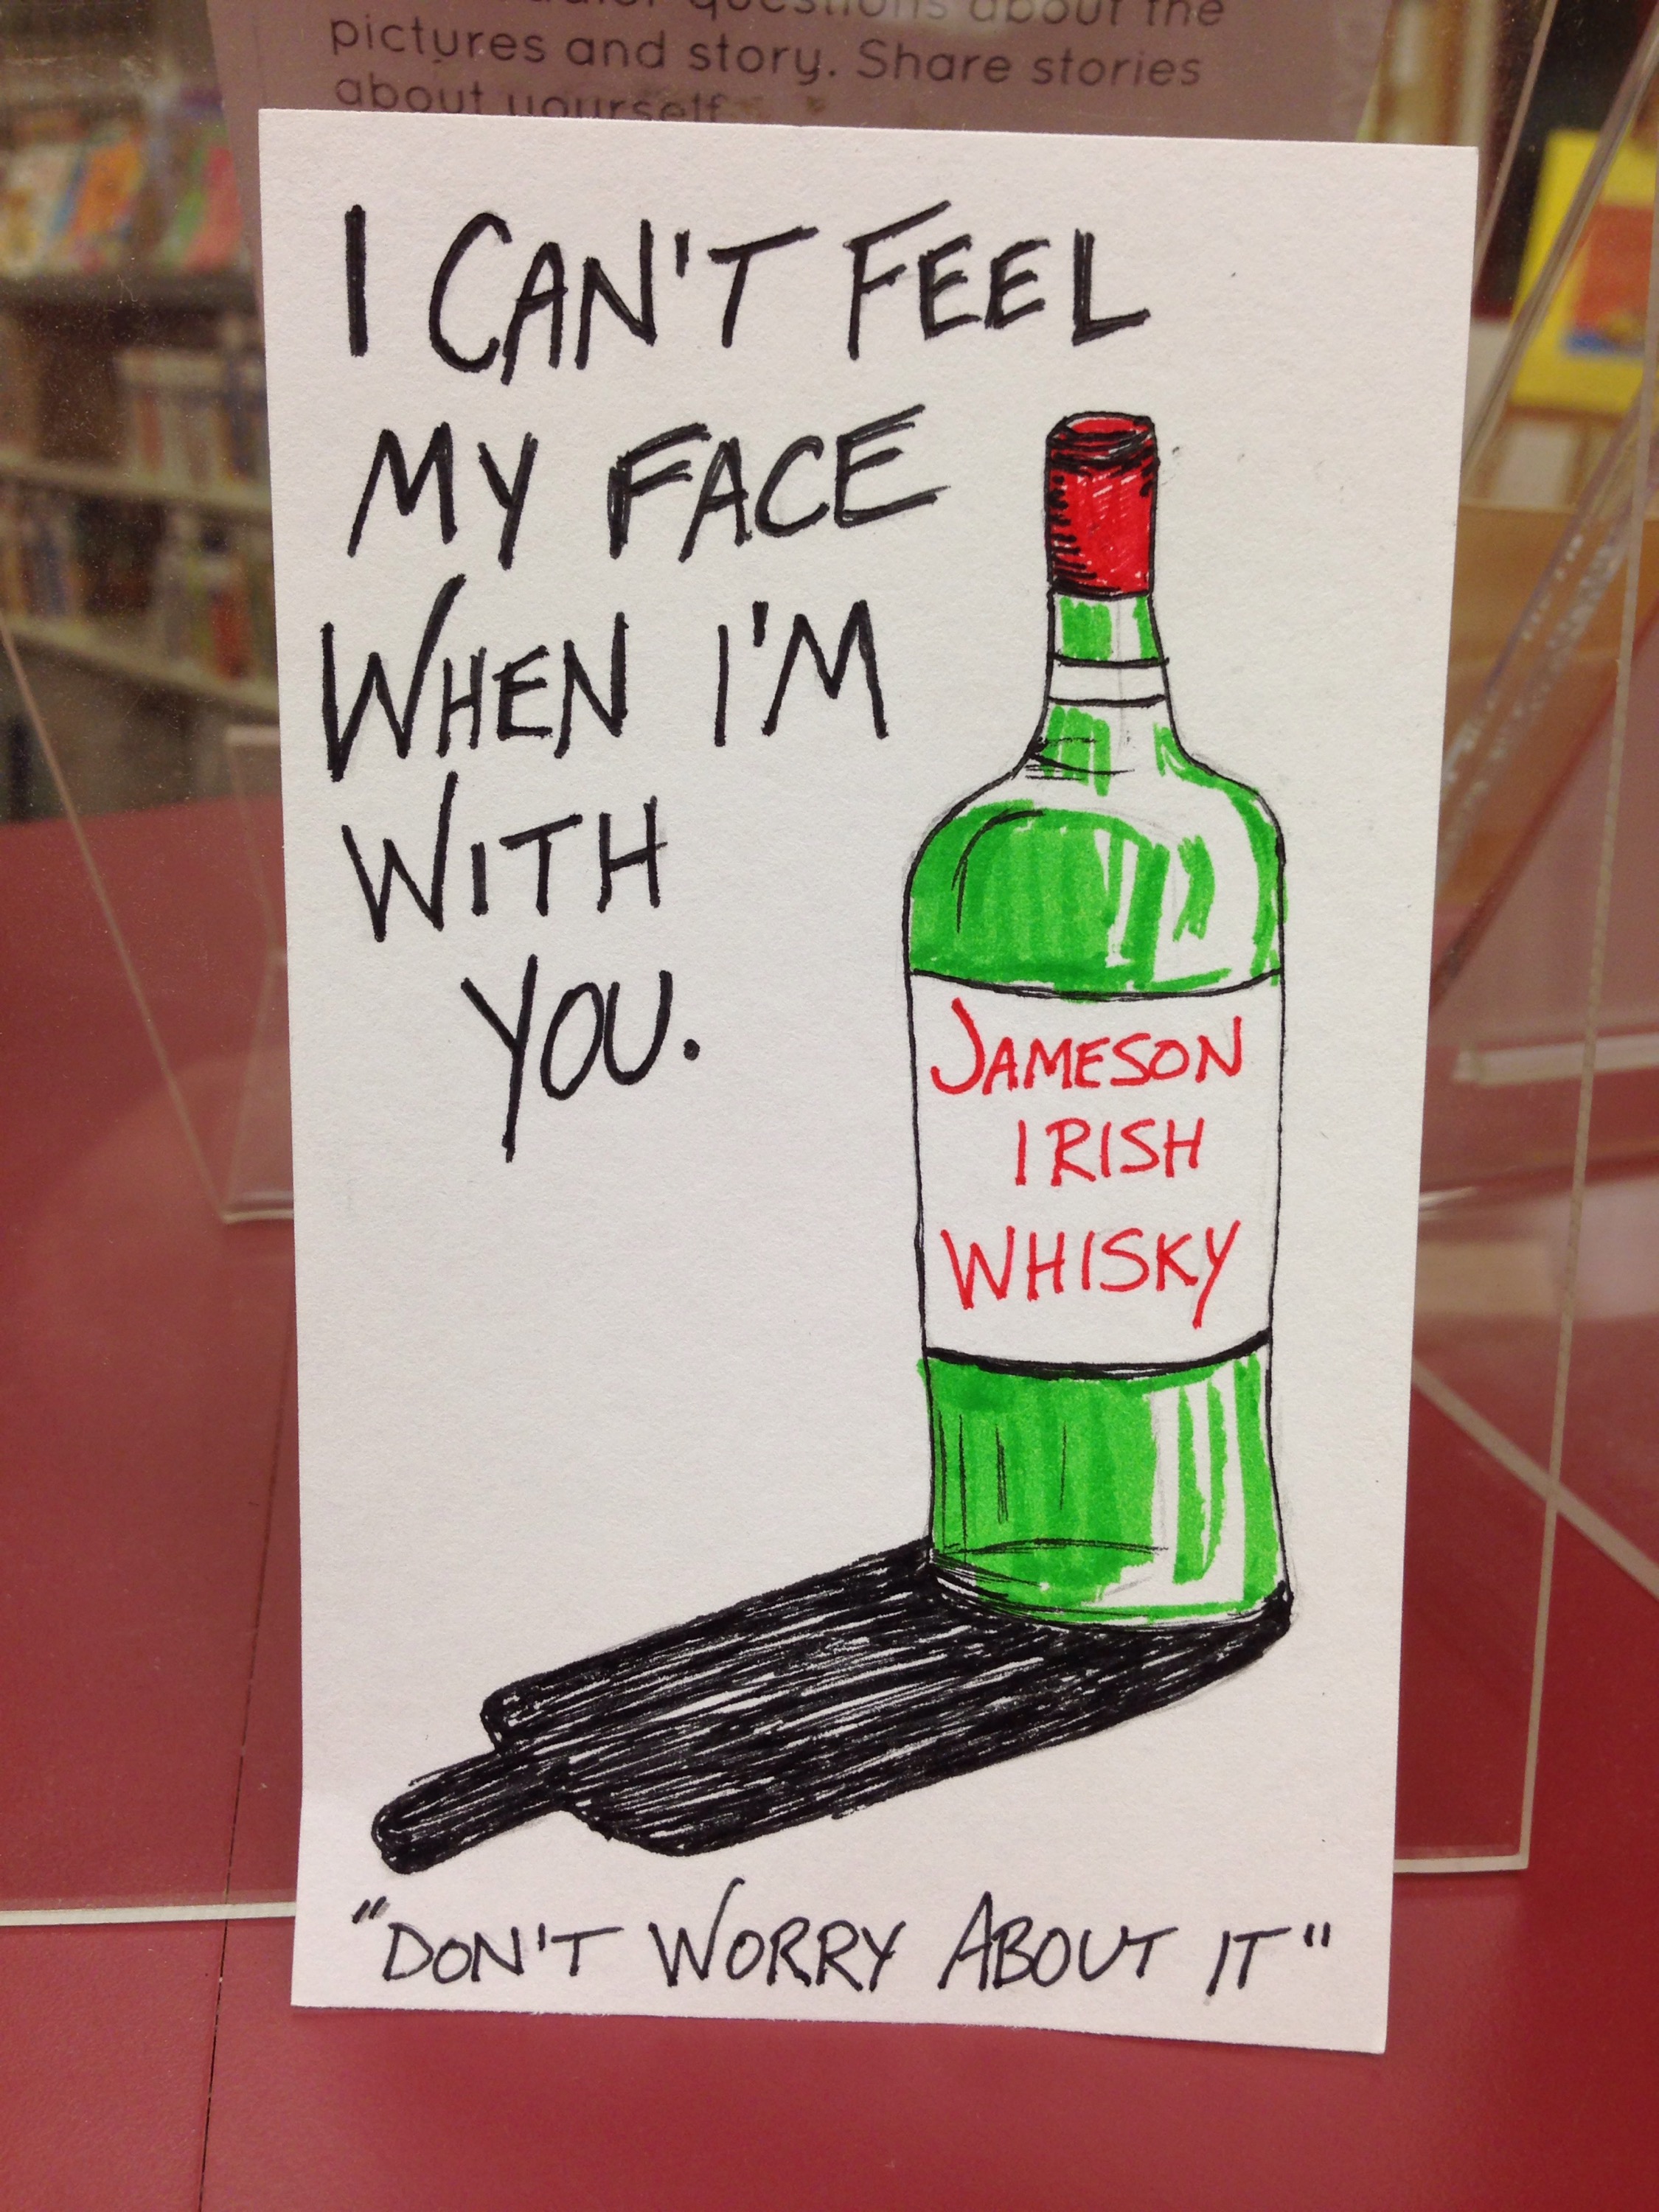 questions about the
pictures and story. Share stories
about yourself
I CAN'T FEEL
MY FACE
WHEN I'M
WITH
YOU.
JAMESON
IRISH
WHISKY
"DON'T WORRY ABOUT IT"